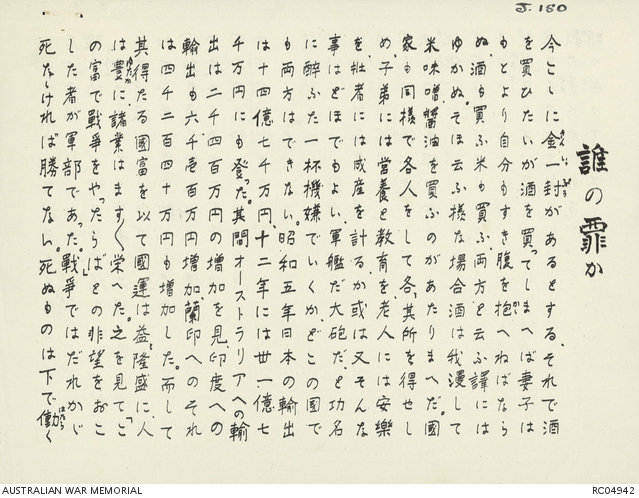 J.180
誰の罪か
今こゝに金一封があるとする、それで酒
を買ひたいが酒を買ってしまへば妻子は
もとより自分もすき腹を抱へねばなら
ぬ、酒も買ふ米も買ふ両方と云ふ譯には
ゆかぬ。そほ云ふ様な場合酒は我漫して
米味噌醤油を買ふのがあたりまへだ。國
家も同様で各人をして各〻其所を得せし
め、子弟には営養と教育を、老人には安樂
を、壮者には成産を計るか或は又そんな
事はどほでもよい、軍艦だ大砲だ、と功名
に酔ふた一杯機嫌でいくかどこの國で
も両方はできない。昭和五年日本の輸出
は十四億七千万円、十二年には丗一億七
千万円にも登った。其間オーストラリアへの輸
出は二千四百万円の増加を見、印度への
輸出も六千壱百万円増加、蘭印へのそれ
は四千二百四十万円も増加した。而して
其得たる國富を以て國運は益〻隆盛に、人
は豊に、諸業はます〱栄へた。之を見て「こ
の富で戦争をやったらば」との非望をおこ
した者が軍部であった。戦争ではだれかゞ
死なければ勝てない。死ぬものは下で働く
AUSTRALIAN WAR MEMORIAL
RC04942